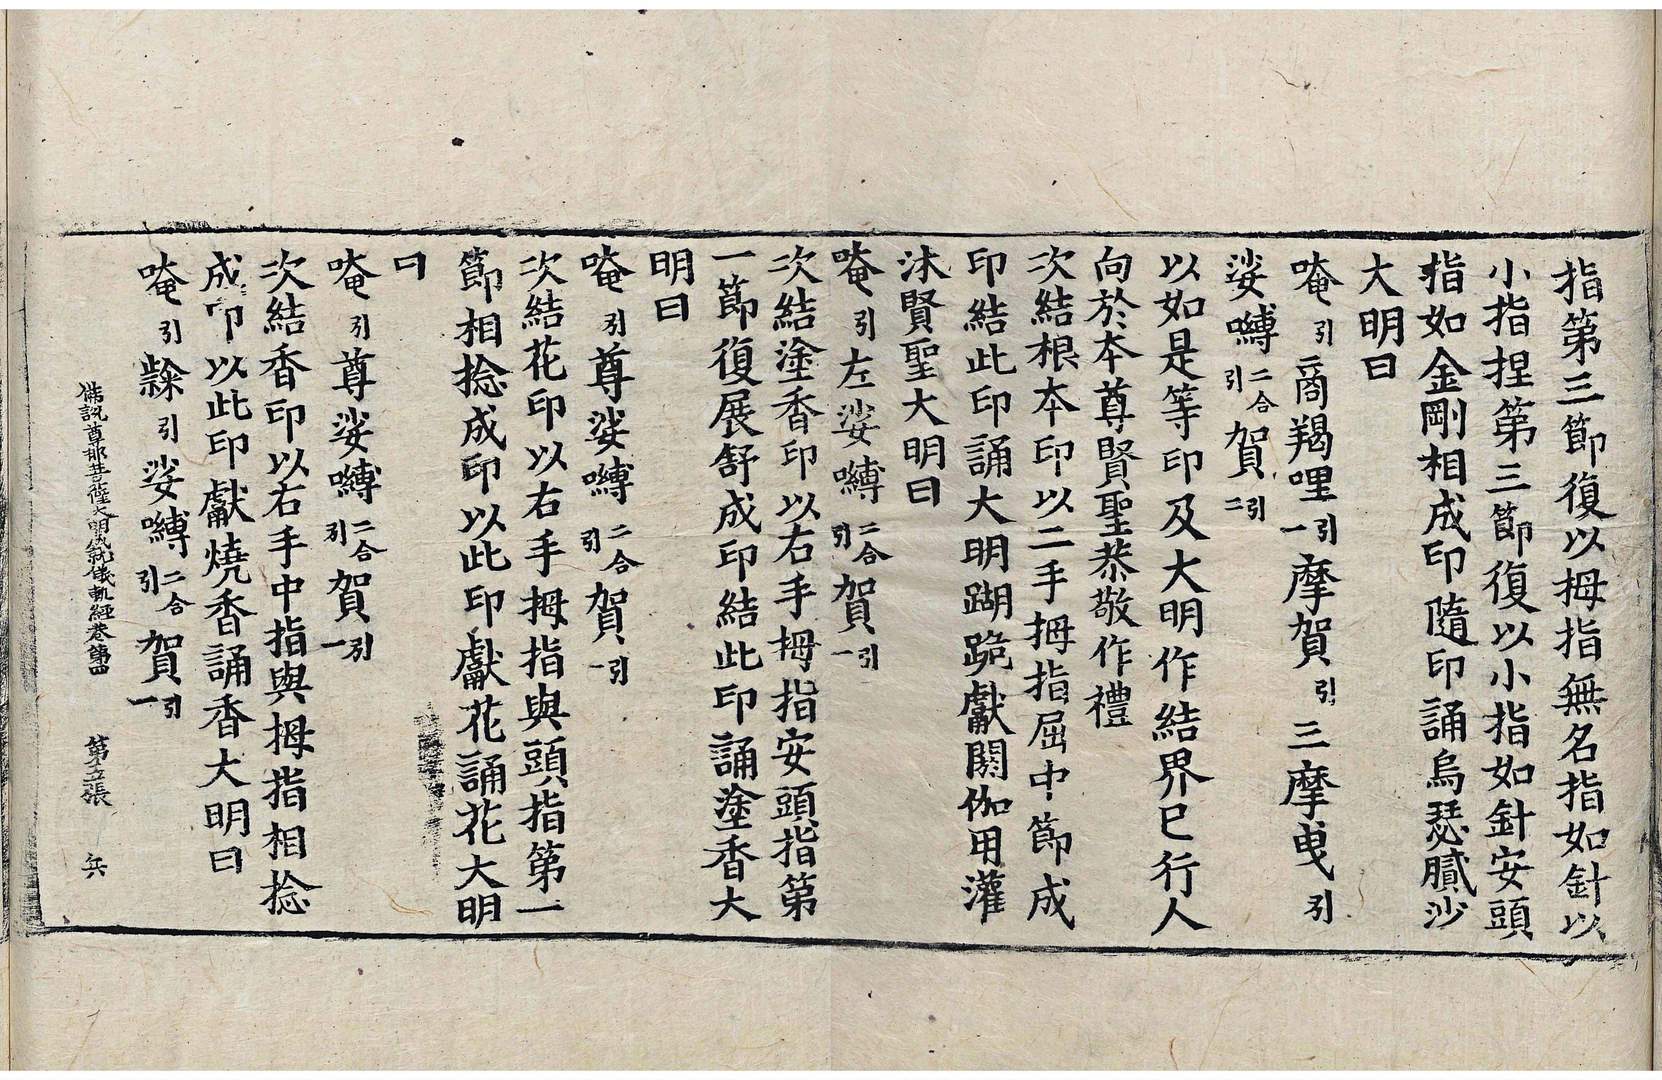 指第三節復以拇指無名指如針以
小指捏第三節復以小指如針安頭
指如金剛相成印隨印誦烏瑟膩沙
大明曰
唵引商羯哩引一摩賀引三摩曳引
娑嚩二合引賀引二
以如是等印及大明作結界已行人
向於本尊賢聖恭敬作禮
次結根本印以二手拇指屈中節成
印結此印誦大明䠒跪獻閼伽用灌
沐賢聖大明曰
唵引左娑嚩二合引賀引一
次結塗香印以右手拇指安頭指第
一節復展舒成印結此印誦塗香大
明曰
唵引尊娑嚩二合引賀引一
次結花印以右手拇指與頭指第一
節相捻成印以此印獻花誦花大明
曰
唵引尊娑嚩二合引賀引一
次結香印以右手中指與拇指相捻
成印以此印獻燒香誦香大明曰
唵引隸引娑嚩二合引賀引一
佛說尊那菩薩大明成就儀軌經卷第四 第五張 兵